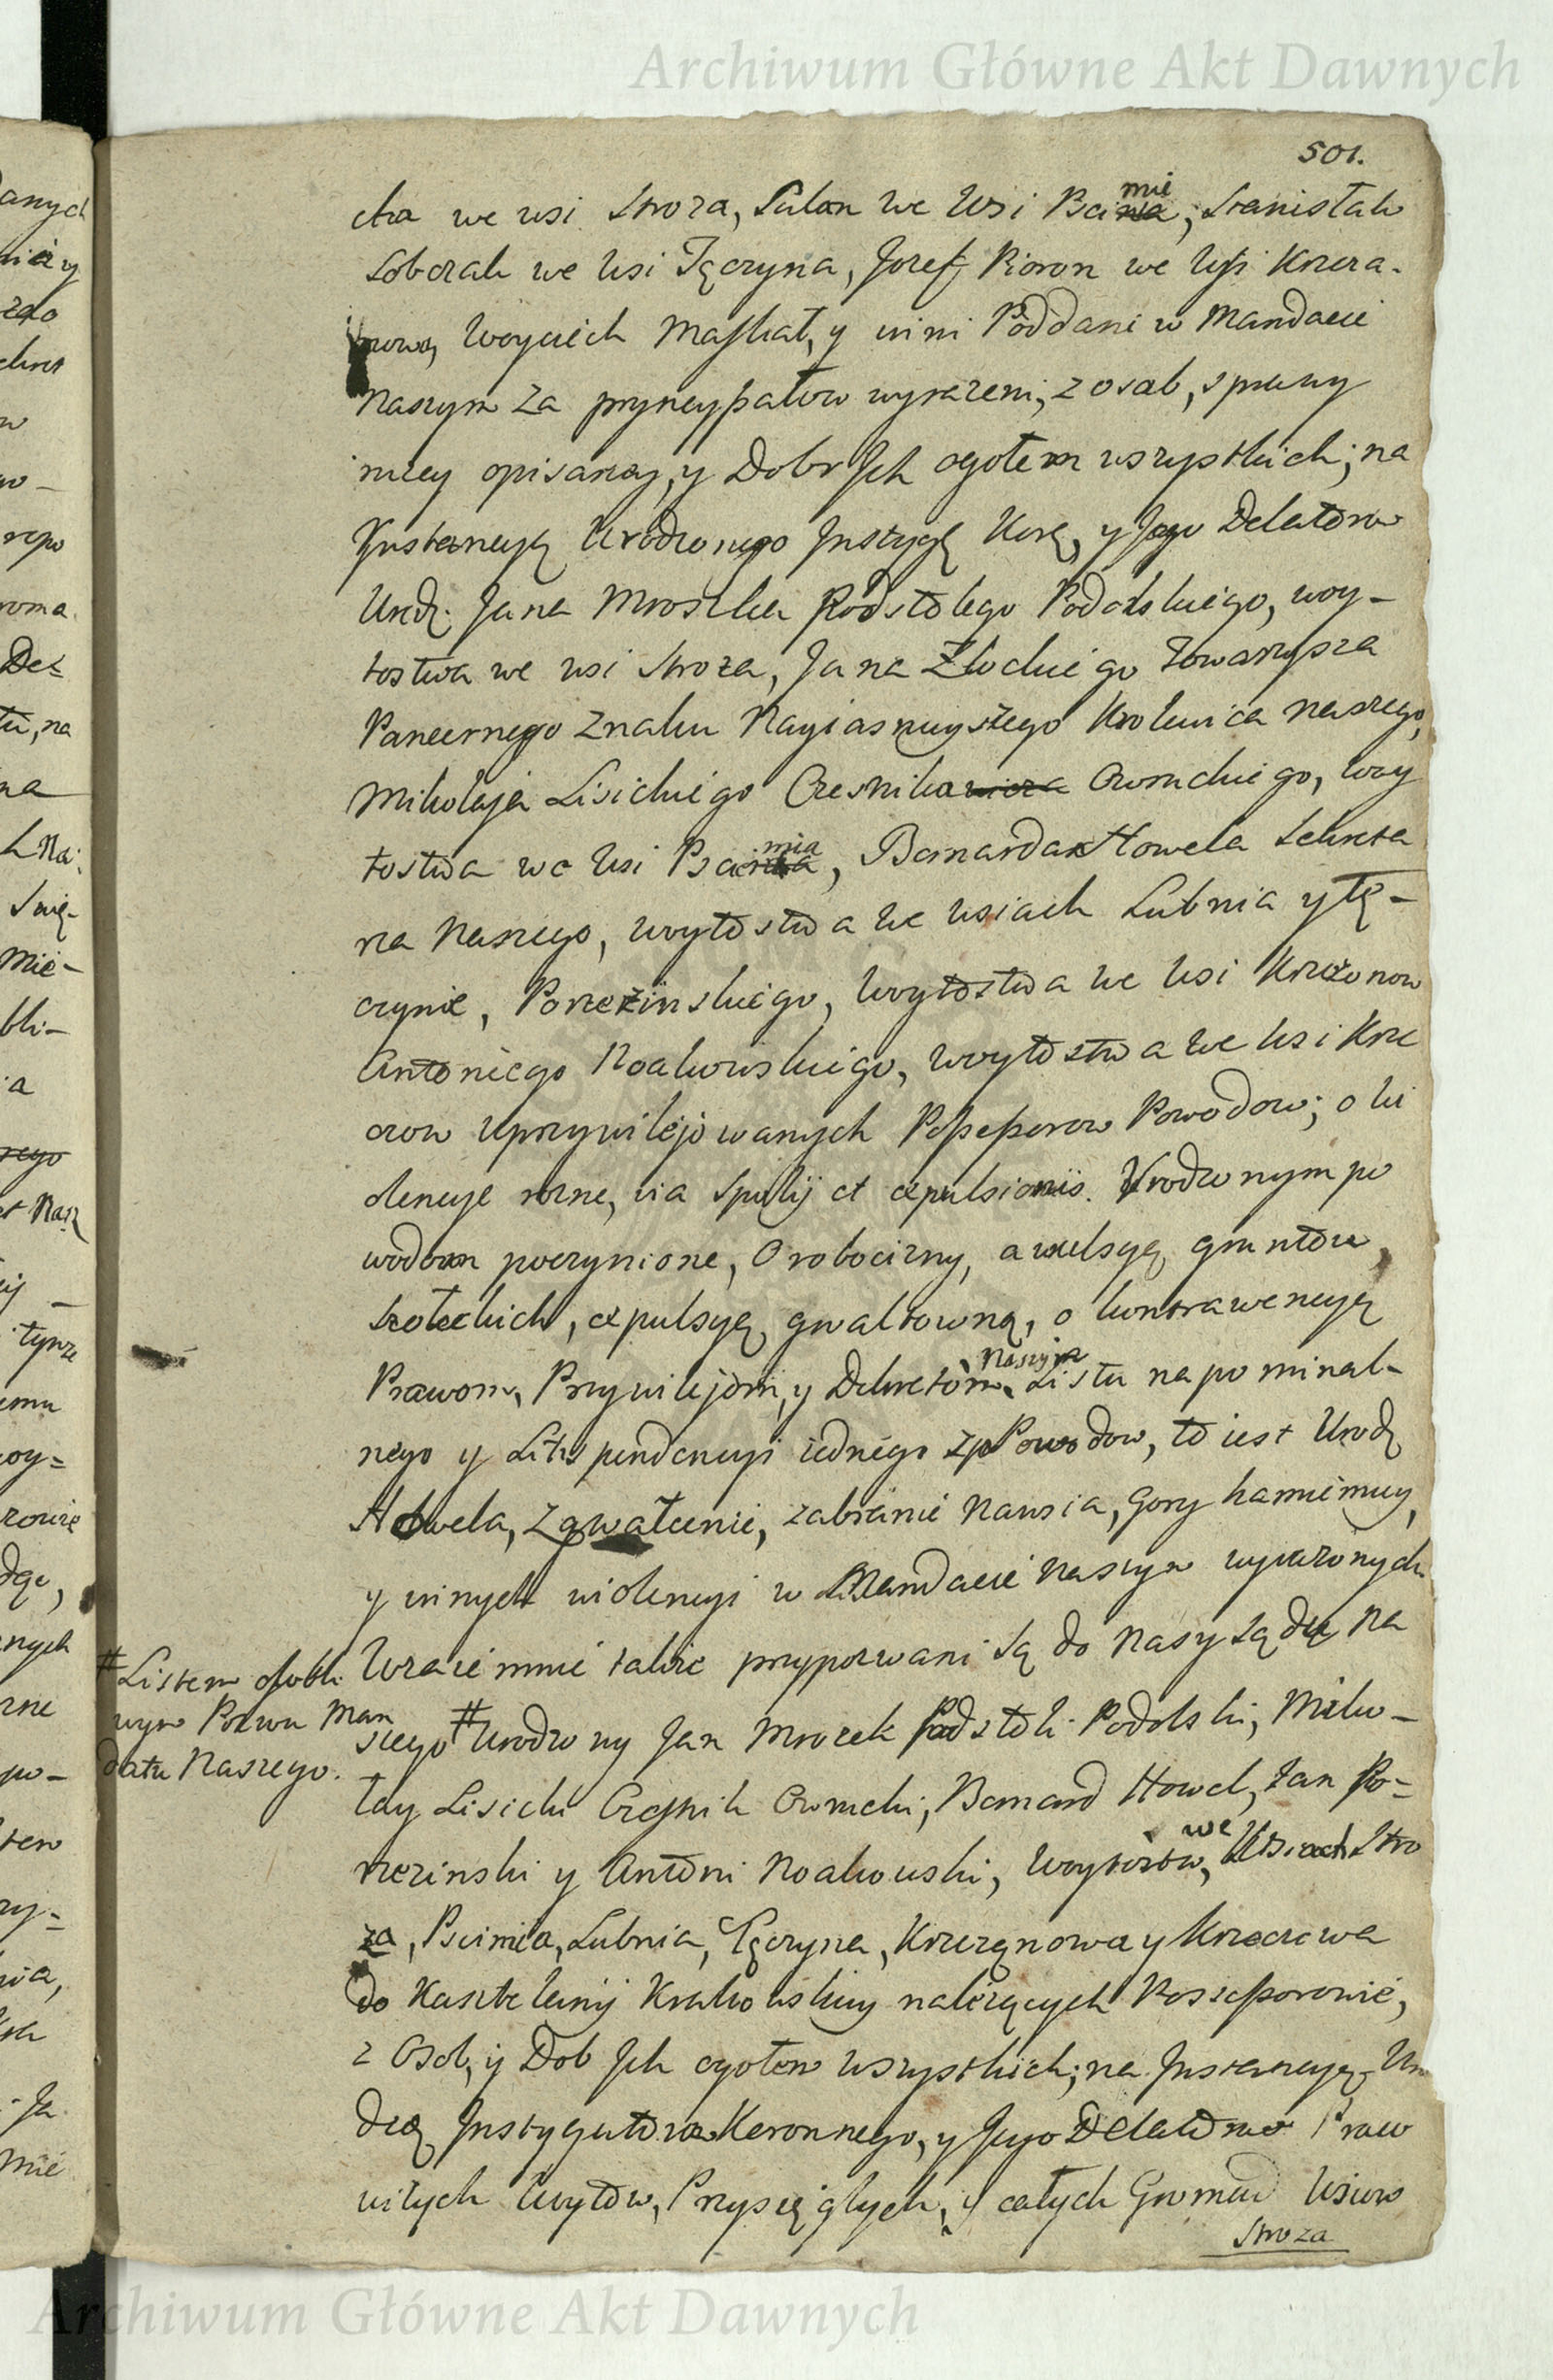 Archiwum Główne Akt Dawnych
501.
cha we wsi Stroza, Salan we Wsi Pcimie, Stanisław
Sobczak we wsi Tęczyna, Jozef Pioron we Wsi Krzcza-
nowa, Woyciech Maskał, y inni Poddani w Mandacie
Naszym za pryncypałow wyrazeni, z osob, sprawy
nizey opisaney, y Dobr Jch ogołem wszystkich; na
Jnstancyą Urodzonego Jnstygą Korą, y Jego Delatorow
Urdz. Jana Mroczka Podstolego Podolskiego, woy-
tostwa we wsi Stroza, Jana Złockiego Towarzysza
Pancernego Znaku Nayiasnieyszego Krolewica naszego,
Mikołaja Lisickiego Czesnika Owruckiego, woy
tostwa we Wsi Pcimia, Bernarda Howela Sekreta
rza Naszego, woytostwa we wsiach Lubnia y Tę-
czynie, Porzezinskiego, Woytostwa we Wsi Krzczonow
Antoniego Noakowskiego, woytostwa we Wsi Krze
czow uprzywilejowanych Possessorow Powodow; o wi
olencye rozne, via Spolij et expulsionis. Urodzonym po
wodom poczynione, O robocizny, awulsyą gruntow
Szołeckich, expulsyą gwałtowną, o kontrawencyą
Prawom, Przywilejom, y Dekretom, Naszym Listu napominal-
nego y Litispendencyi iednego z Powodow, to iest Urodz
Howela, Zgwałcenie, zabranie Nawsia, Gory kamienney,
y innych violencyi w Mandacie Naszym wyrazonych
Wzaiemnie takze przypozwani są do Naszy Sądu Na
szego # Urodzony Jan Mroczek Podstoli Podolski, Miko-
łay Lisicki Czesnik Owrucki, Bernard Howel, Jan Po-
rzezinski y Antoni Noakowski, Woytostw, we Wsiach Stro
za, Pcimia, Lubnia, Tęczyna, Krzczonowa y Krzeczowa
do Kasztelanij Krakowskiey nalezących Possessorowie,
z Osob, y Dob Jch ogołem wszystkich; na Jnstancyą Uro
dzą Jnstygatora Koronnego, y Jego Delatorow Praw
witych Woytow, Przysięgłych, y całych Gromad Wsiow
Stroza
# Listem osobli
wym Pozwu Man
datu Naszego.
Archiwum Główne Akt Dawnych